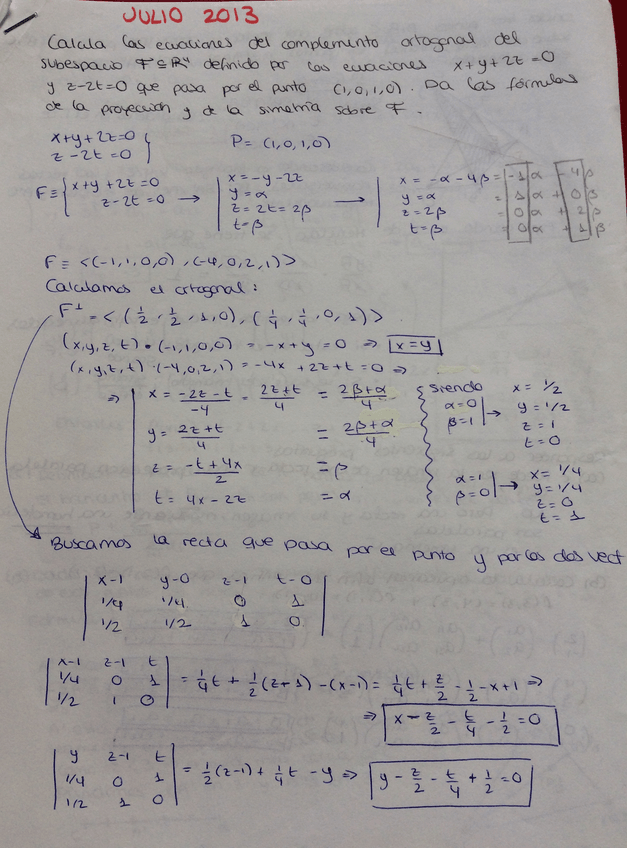 JULIO 2013
Calcula las ecuaciones del complemento ortogonal del
subespacio F ⊆ ℝ⁴ definido por las ecuaciones x+y+2z=0
y z-2t=0 que pasa por el punto (1,0,1,0). Da las fórmulas
de la proyección y de la simetría sobre F.
x+y+2z=0
z-2t=0
P=(1,0,1,0)
F≡ { x+y+2z=0 → | x=-y-2z → | x=-α-4β = -1 α - 4 β
z-2t=0 | y=α | y=α = 1 α + 0 β
| z=2t=2β | z=2β = 0 α + 2 β
| t=β | t=β = 0 α + 1 β
F≡ <(-1,1,0,0),(-4,0,2,1)>
Calculamos el ortogonal:
F⊥ = <(1/2, 1/2, 1, 0), (1/4, 1/4, 0, 1)>
(x,y,z,t)·(-1,1,0,0) = -x+y=0 ⇒ x=y
(x,y,z,t)·(-4,0,2,1) = -4x+2z+t=0 ⇒
⇒ | x = (-2z-t)/-4 = (2z+t)/4 = (2β+α)/4
y = (2z+t)/4 = (2β+α)/4
z = (-t+4x)/2 = β
t = 4x-2z = α
Siendo
α=0
β=1 → x=1/2
y=1/2
z=1
t=0
α=1
β=0 → x=1/4
y=1/4
z=0
t=1
Buscamos la recta que pasa por el punto y por los dos vect
| x-1 y-0 z-1 t-0 |
| 1/4 1/4 0 1 |
| 1/2 1/2 1 0 |
| x-1 z-1 t |
| 1/4 0 1 | = 1/4 t + 1/2 (z+1) - (x-1) = 1/4 t + z/2 - 1/2 - x+1 ⇒
| 1/2 1 0 |
⇒ x - z/2 - t/4 - 1/2 = 0
| y z-1 t |
| 1/4 0 1 | = 1/2 (z-1) + 1/4 t - y ⇒ y - z/2 - t/4 + 1/2 = 0
| 1/2 1 0 |